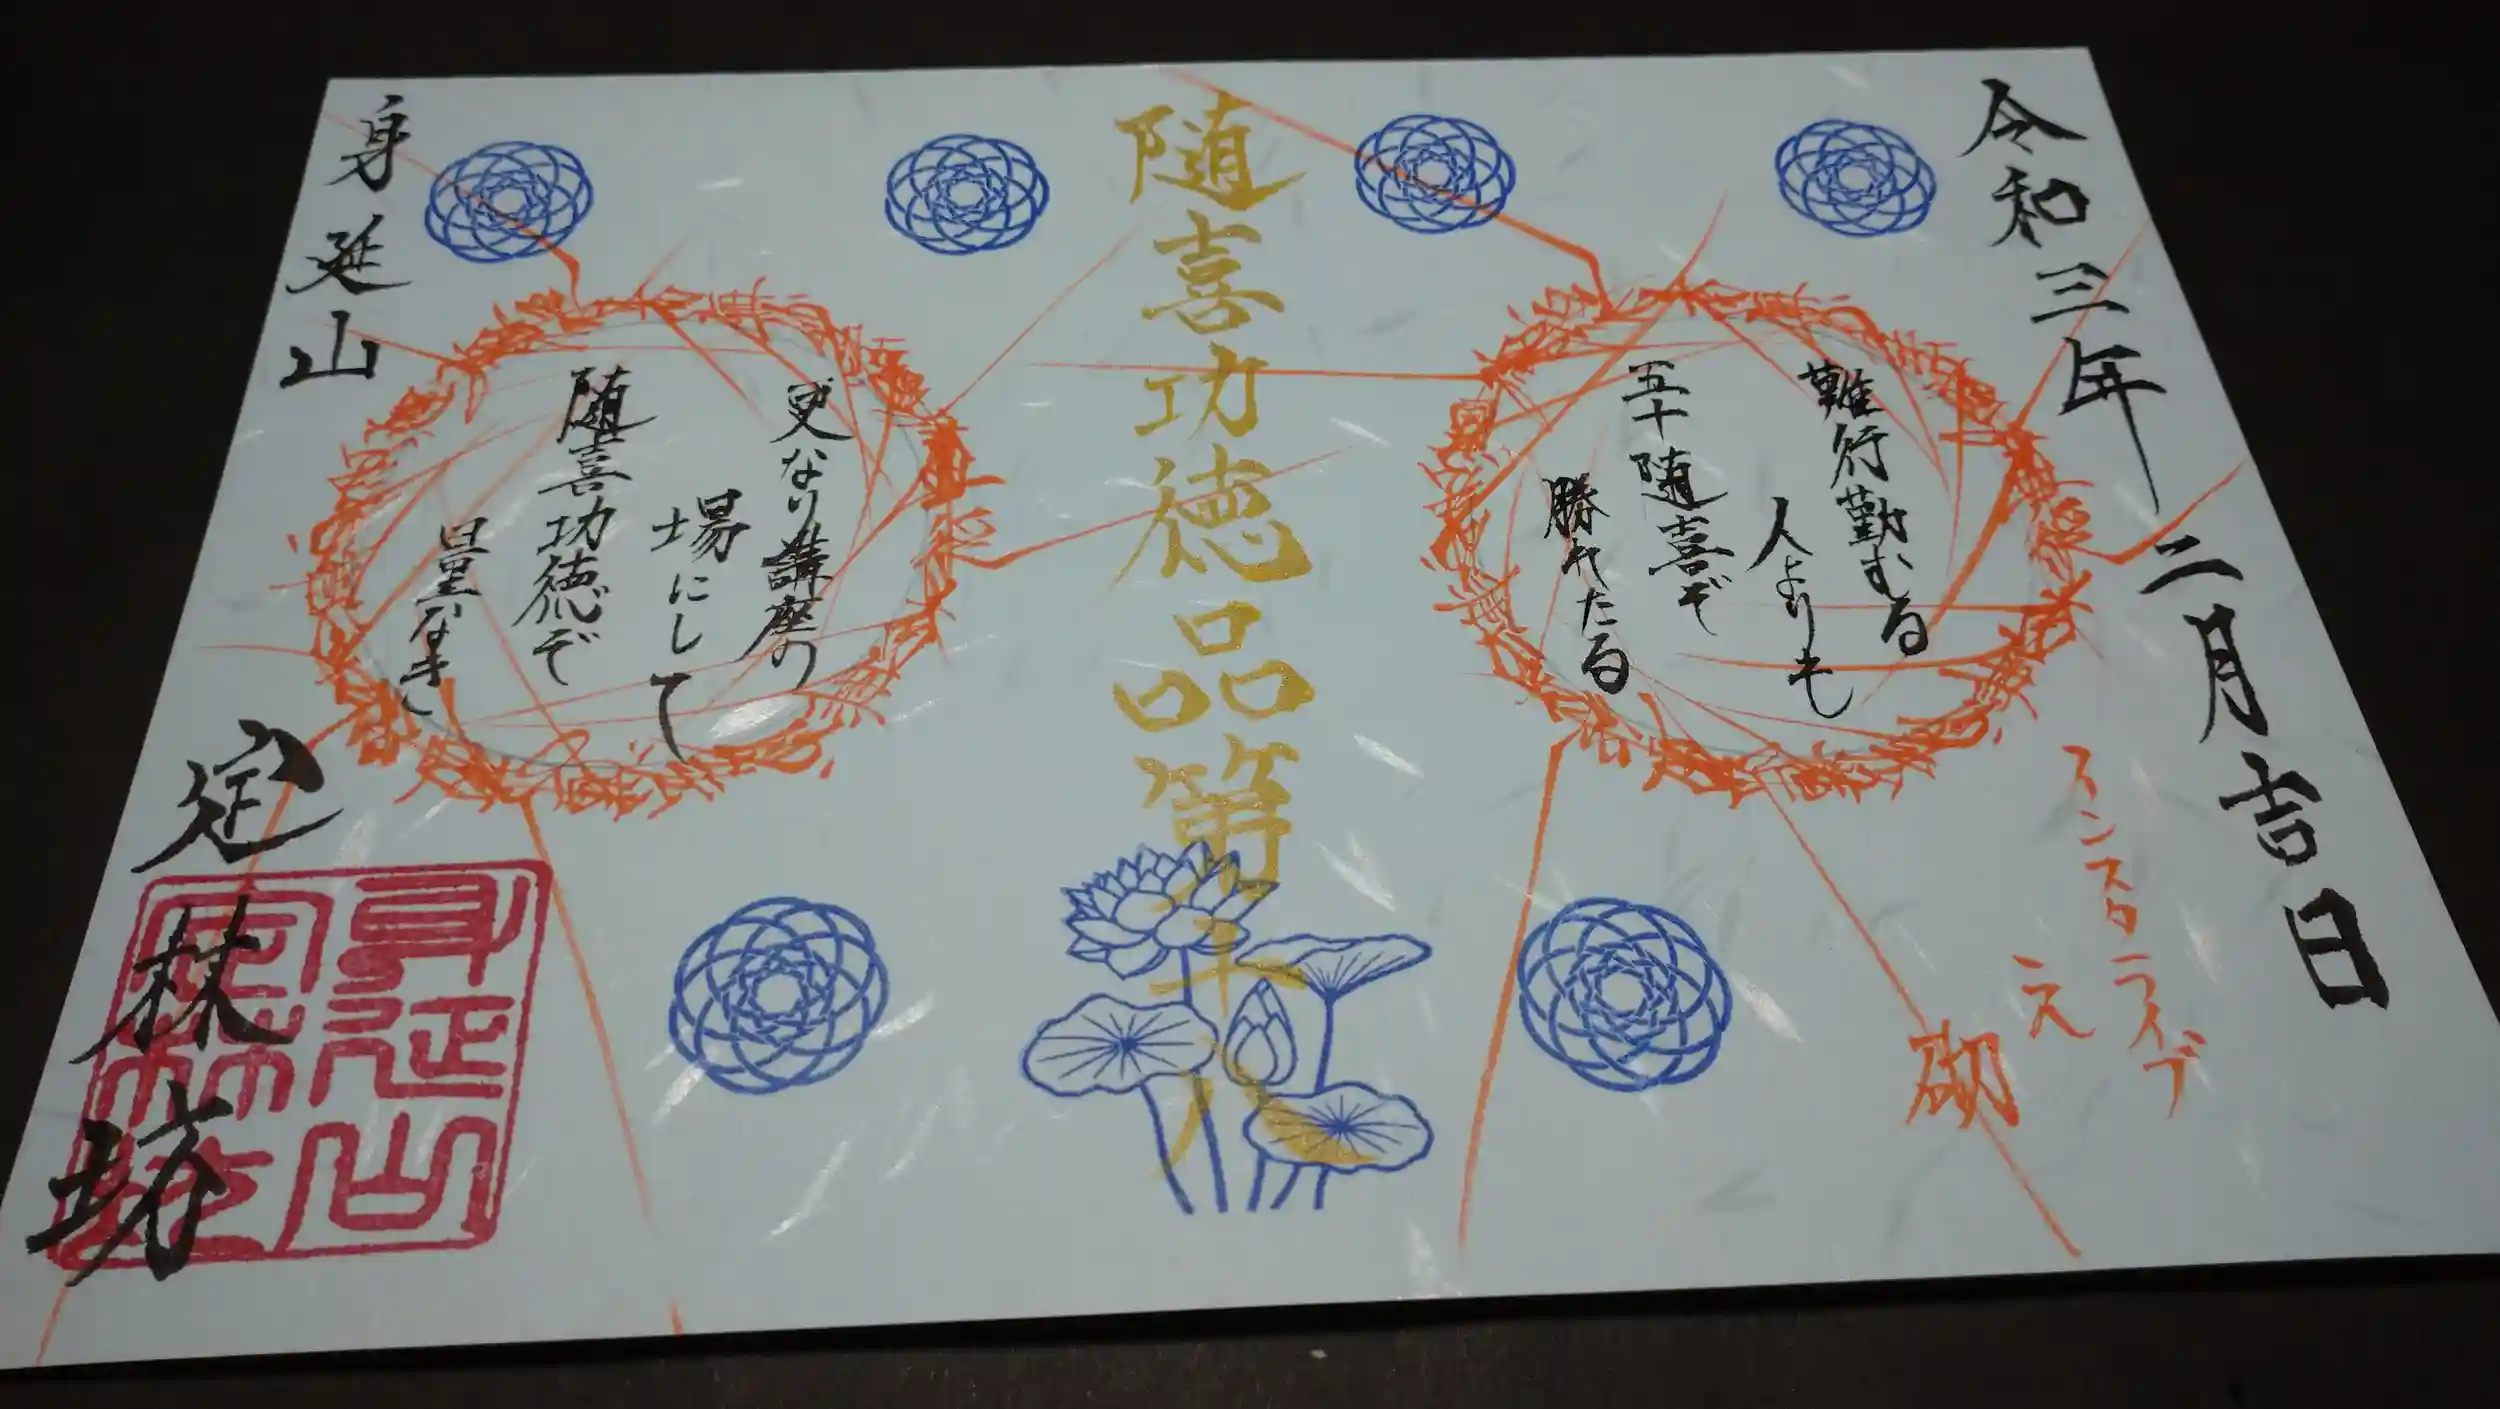 令和三年二月吉日
インスタライブ
之
砌
難行勤むる
人よりも
五十随喜ぞ
勝れたる
随喜功徳品第十八
更なり講座の
場にして
随喜功徳ぞ
量なき
身延山
定林坊
身延山
定林坊